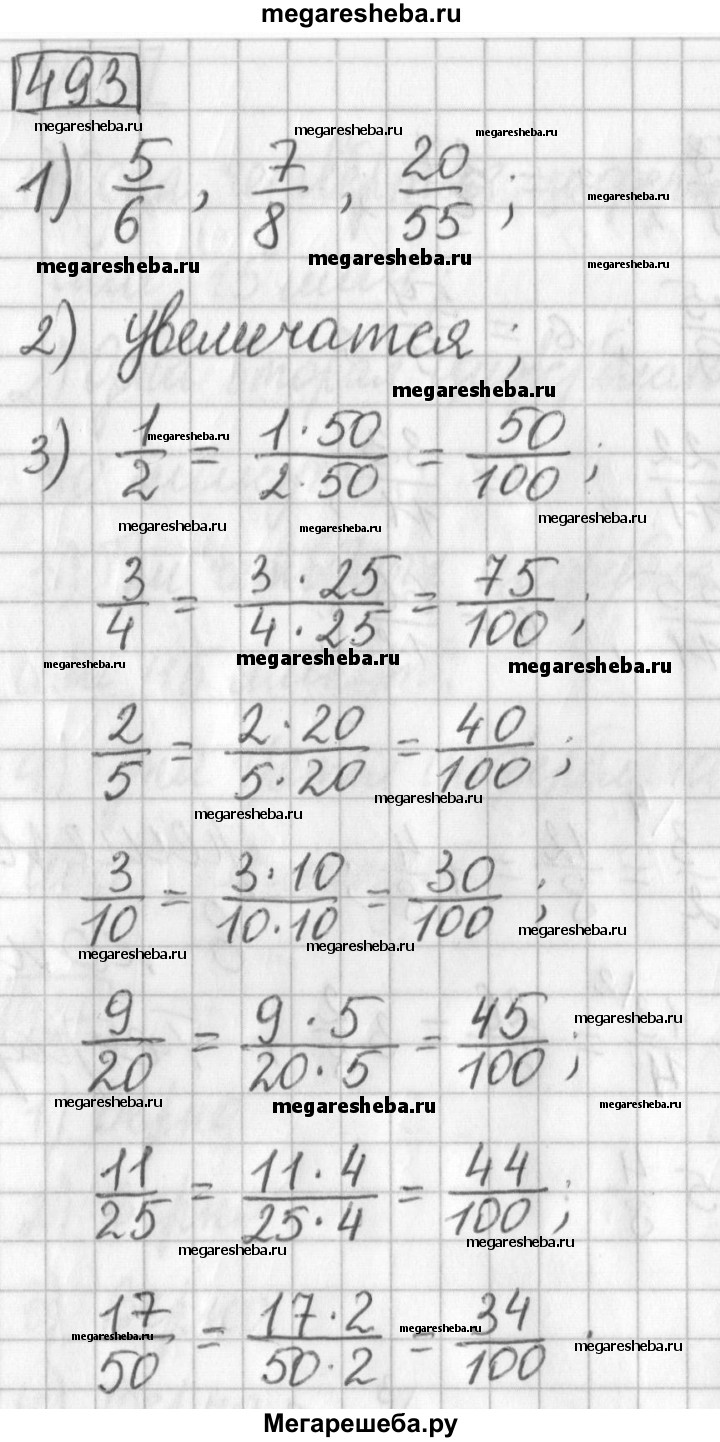 megaresheba.ru
493
megaresheba.ru megaresheba.ru megaresheba.ru
1) 5/6, 7/8, 20/55; megaresheba.ru
megaresheba.ru megaresheba.ru megaresheba.ru
2) увеличатся;
megaresheba.ru
3) 1/2 = 1·50/2·50 = 50/100; megaresheba.ru
megaresheba.ru megaresheba.ru megaresheba.ru
3/4 = 3·25/4·25 = 75/100;
megaresheba.ru megaresheba.ru megaresheba.ru
2/5 = 2·20/5·20 = 40/100;
megaresheba.ru megaresheba.ru
3/10 = 3·10/10·10 = 30/100;
megaresheba.ru megaresheba.ru megaresheba.ru
9/20 = 9·5/20·5 = 45/100; megaresheba.ru
megaresheba.ru megaresheba.ru megaresheba.ru
11/25 = 11·4/25·4 = 44/100;
megaresheba.ru megaresheba.ru
17/50 = 17·2/50·2 = 34/100.
megaresheba.ru megaresheba.ru megaresheba.ru
Мегарешеба.ру